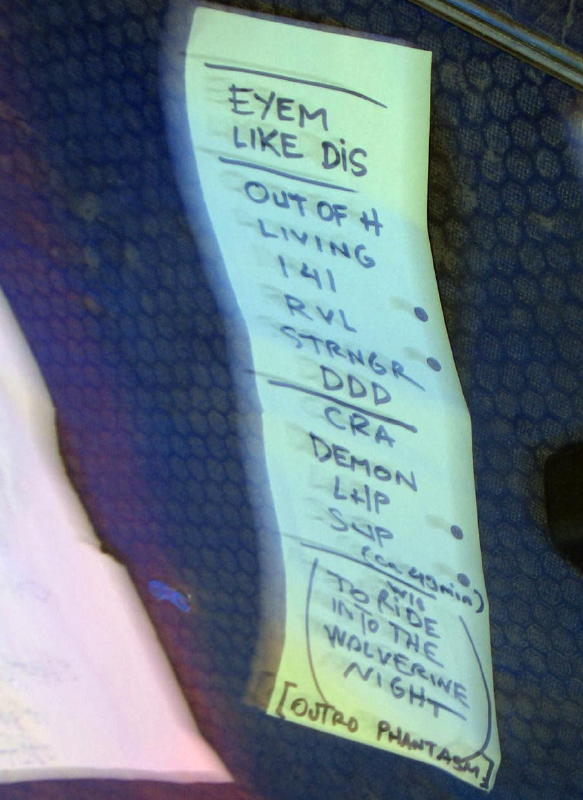 EYEM
LIKE DiS
OUT OF H
LIVING
141
RVL
STRNGR
DDD
CRA
DEMON
LHP
SWP
(ca 49min)
TO RIDE
INTO THE
WOLVERINE
NIGHT
[OUTRO PHANTASM]